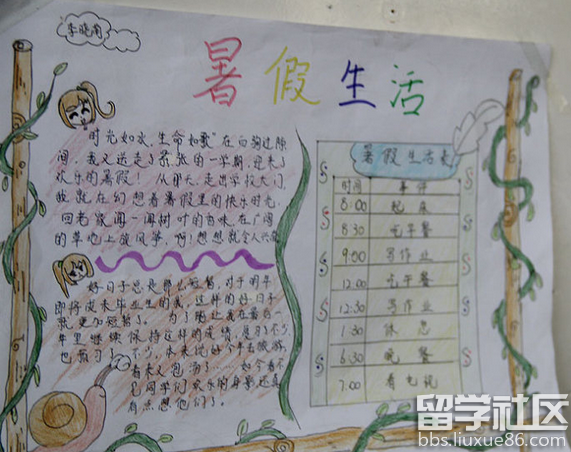 李晓雨
暑假生活
时光如水,生命如歌"在白驹过隙
间,我又送走了紧张的一学期,迎来了
欢乐的暑假!从那天,走出学校大门,
我就在幻想着暑假里的快乐时光,
回老家闻一闻树叶的香味,在广阔
的草地上放风筝,啊!想想就令人兴奋
好日子总是那么短暂,对于明年
即将成未毕业生的我,这样的好日子
就更加短暂了。为了能让我在最后一
年里继续保持这样的成绩,复习
也预习了不少,本来说好了去旅游,
看来又包汤了……如今看
同学们欢乐的身影还真
有点想他们了。
暑假生活表
时间 事件
8:00 起床
8:30 吃早餐
9:00 写作业
12:00 吃午餐
12:30 写作业
1:30 休息
6:30 晚餐
7:00 看电视
留学社区
bbs.liuxue86.com